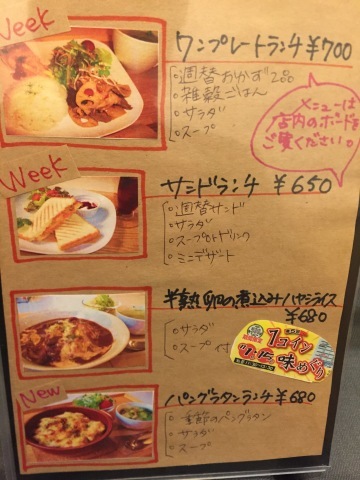 Week
ワンプレートランチ ¥700
○週替おかず2品
○雑穀ごはん
○サラダ
○スープ
メニューは
店内のボードを
ご覧ください。
Week
サンドランチ ¥650
○週替サンド
○サラダ
○スープorドリンク
○ミニデザート
半熟卵の煮込みハヤシライス
¥680
○サラダ
○スープ付
1コイン
味めぐり
New
パングラタンランチ ¥680
○季節のパングラタン
○サラダ
○スープ